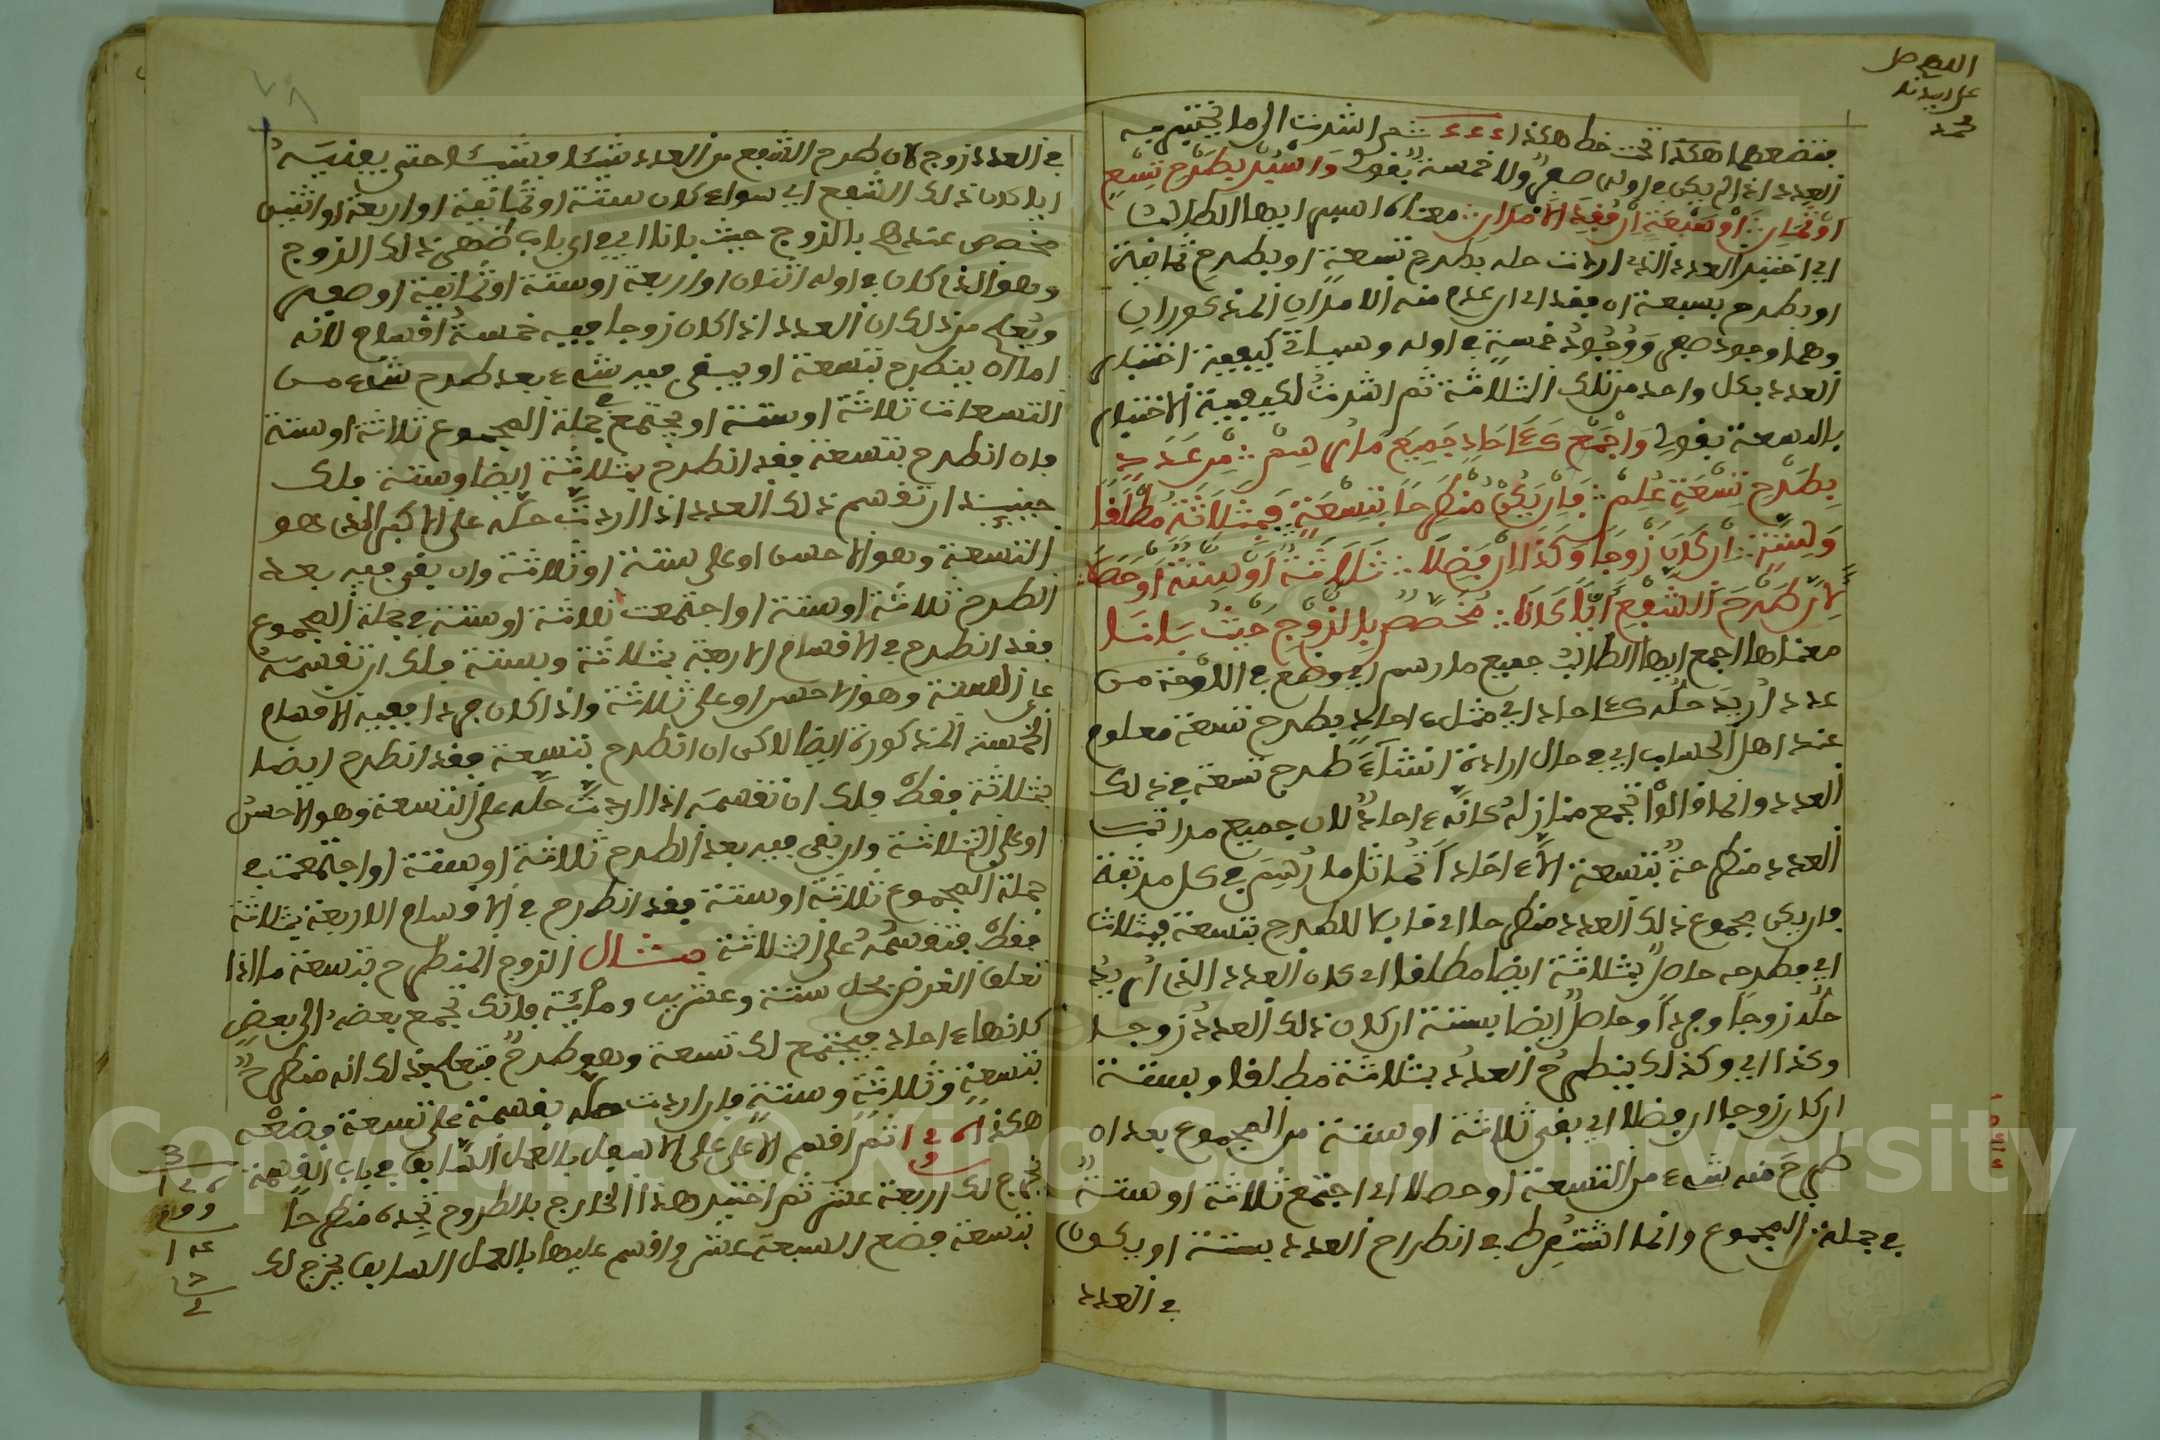 اللهم صل
على سيدنا
محمد
فتضعها هكذا تحت خط هكذا ٤٤٤ ثم اشرت الى ما تختبر به
العدد اذا لم يكن في اوله صفر ولا خمسة بقولي واسبر بطرح تسع
او ثمان او سبعة ان فقد الامران معناه اسبر ايها الطالب
اي اختبر العدد الذي اردت حله بطرح تسعة او بطرح ثمانية
او بطرح سبعة ان فقد اي ان عدم منه الامران المذكوران
وهما وجود صفر ووجود خمسة في اوله وسياتي كيفية اختبار
العدد بكل واحد من تلك الثلاثة ثم اشرت لكيفية الاختبار
بالتسعة بقولي واجمع كـٔاحاد جميع ما رسم من عدد
بطرح تسعة علم فان يكن منطرحا بتسعة فبثلاثة مطلقا
وستة ان كان زوجا وكذا ان فضلا ثلاثة او ستة او حصلا
لان طرح الشفع ايا كانا مخصص بالزوج حيث بانا
معناها اجمع ايها الطالب جميع ما رسم اي وضع في اللوحة من
عدد اريد حله كـٔاحاد اي مثل ءاحاد بطرح تسعة معلوم
عند اهل الحساب اي في حال ارادة انشاء طرح تسعة في ذلك
العدد وانما قالوا تجمع منازله كانه ءاحاد لان جميع مراتب
العدد منطرحة بتسعة الا ءاحادا تماثل ما رسم في كل مرتبة
فان يكن مجموع ذلك العدد منطرحا اي قابلا للطرح بتسعة فبثلاث
اي فطرحه حاصل بثلاثة ايضا مطلقا اي كان العدد الذي اريد
حله زوجا او فردا وحاصل ايضا بستة ان كان ذلك العدد زوجا
وكذا اي وكذلك ينطرح العدد بثلاثة مطلقا وبستة
ان كان زوجا ان فضلا اي بقي ثلاثة او ستة من المجموع بعد ان
طرح منه شيء من التسعة او حصلا اي اجتمع ثلاثة او ستة
في جملة المجموع وانما اشترط في انطراح العدد بستة ان يكون
في العدد
في العدد زوج لان طرح الشفع من العدد شيئا وشيئا حتى يفنيه
ايا كان ذلك الشفع اي سواء كان ستة او ثمانية او اربعة او اثنين
مخصص عندهم بالزوج حيث بانا اي في اي باب ظهر ذلك الزوج
وهو الذي كان في اوله اثنان او اربعة او ستة او ثمانية او صفر
ويعلم من ذلك ان العدد اذا كان زوجا ففيه خمسة اقسام لانه
اما ان ينطرح بتسعة او يبقى فيه شيء بعد طرح شيء من
التسعات ثلاثة او ستة او يجتمع في جملة المجموع ثلاثة او ستة
فان انطرح بتسعة فقد انطرح بثلاثة ايضا وستة فلك
حينئذ ان تقسم ذلك العدد اذا اردت حله على الاكبر الذي هو
التسعة وهو الاحسن او على ستة او ثلاثة وان بقي فيه بعد
الطرح ثلاثة او ستة او اجتمعت ثلاثة او ستة في جملة المجموع
فقد انطرح في الاقسام الاربعة بثلاثة وبستة فلك ان تقسمه
على الستة وهو الاحسن او على ثلاثة واذا كان فردا ففيه الاقسام
الخمسة المذكورة ايضا لاكن ان انطرح بتسعة فقد انطرح ايضا
بثلاثة فقط فلك ان تقسمه اذا اردت حله على التسعة وهو الاحسن
او على الثلاثة وان بقي فيه بعد الطرح ثلاثة او ستة او اجتمعت في
جملة المجموع ثلاثة او ستة فقد انطرح في الاقسام الاربعة بثلاثة
فقط فتقسمه على الثلاثة مثال الزوج المنطرح بتسعة ما اذا
تعلق الغرض بحل ستة وعشرين ومائة فانك تجمع بعضه الى بعض
كانها ءاحاد فيجتمع لك تسعة وهو طرح فتعلم بذلك انه منطرح
بتسعة وثلاثة وستة فان اردت حله بقسمة على تسعة فضعه
هكذا ثم اقسم الاعلى على الاسفل بالعمل السابق في باب القسمة
يخرج لك اربعة عشر ثم اختبر هذا الخارج بالطروح تجده منطرحا
بتسعة فضع السبعة عشر واقسم عليها بالعمل السابق يخرج لك
Copyright © King Saud University